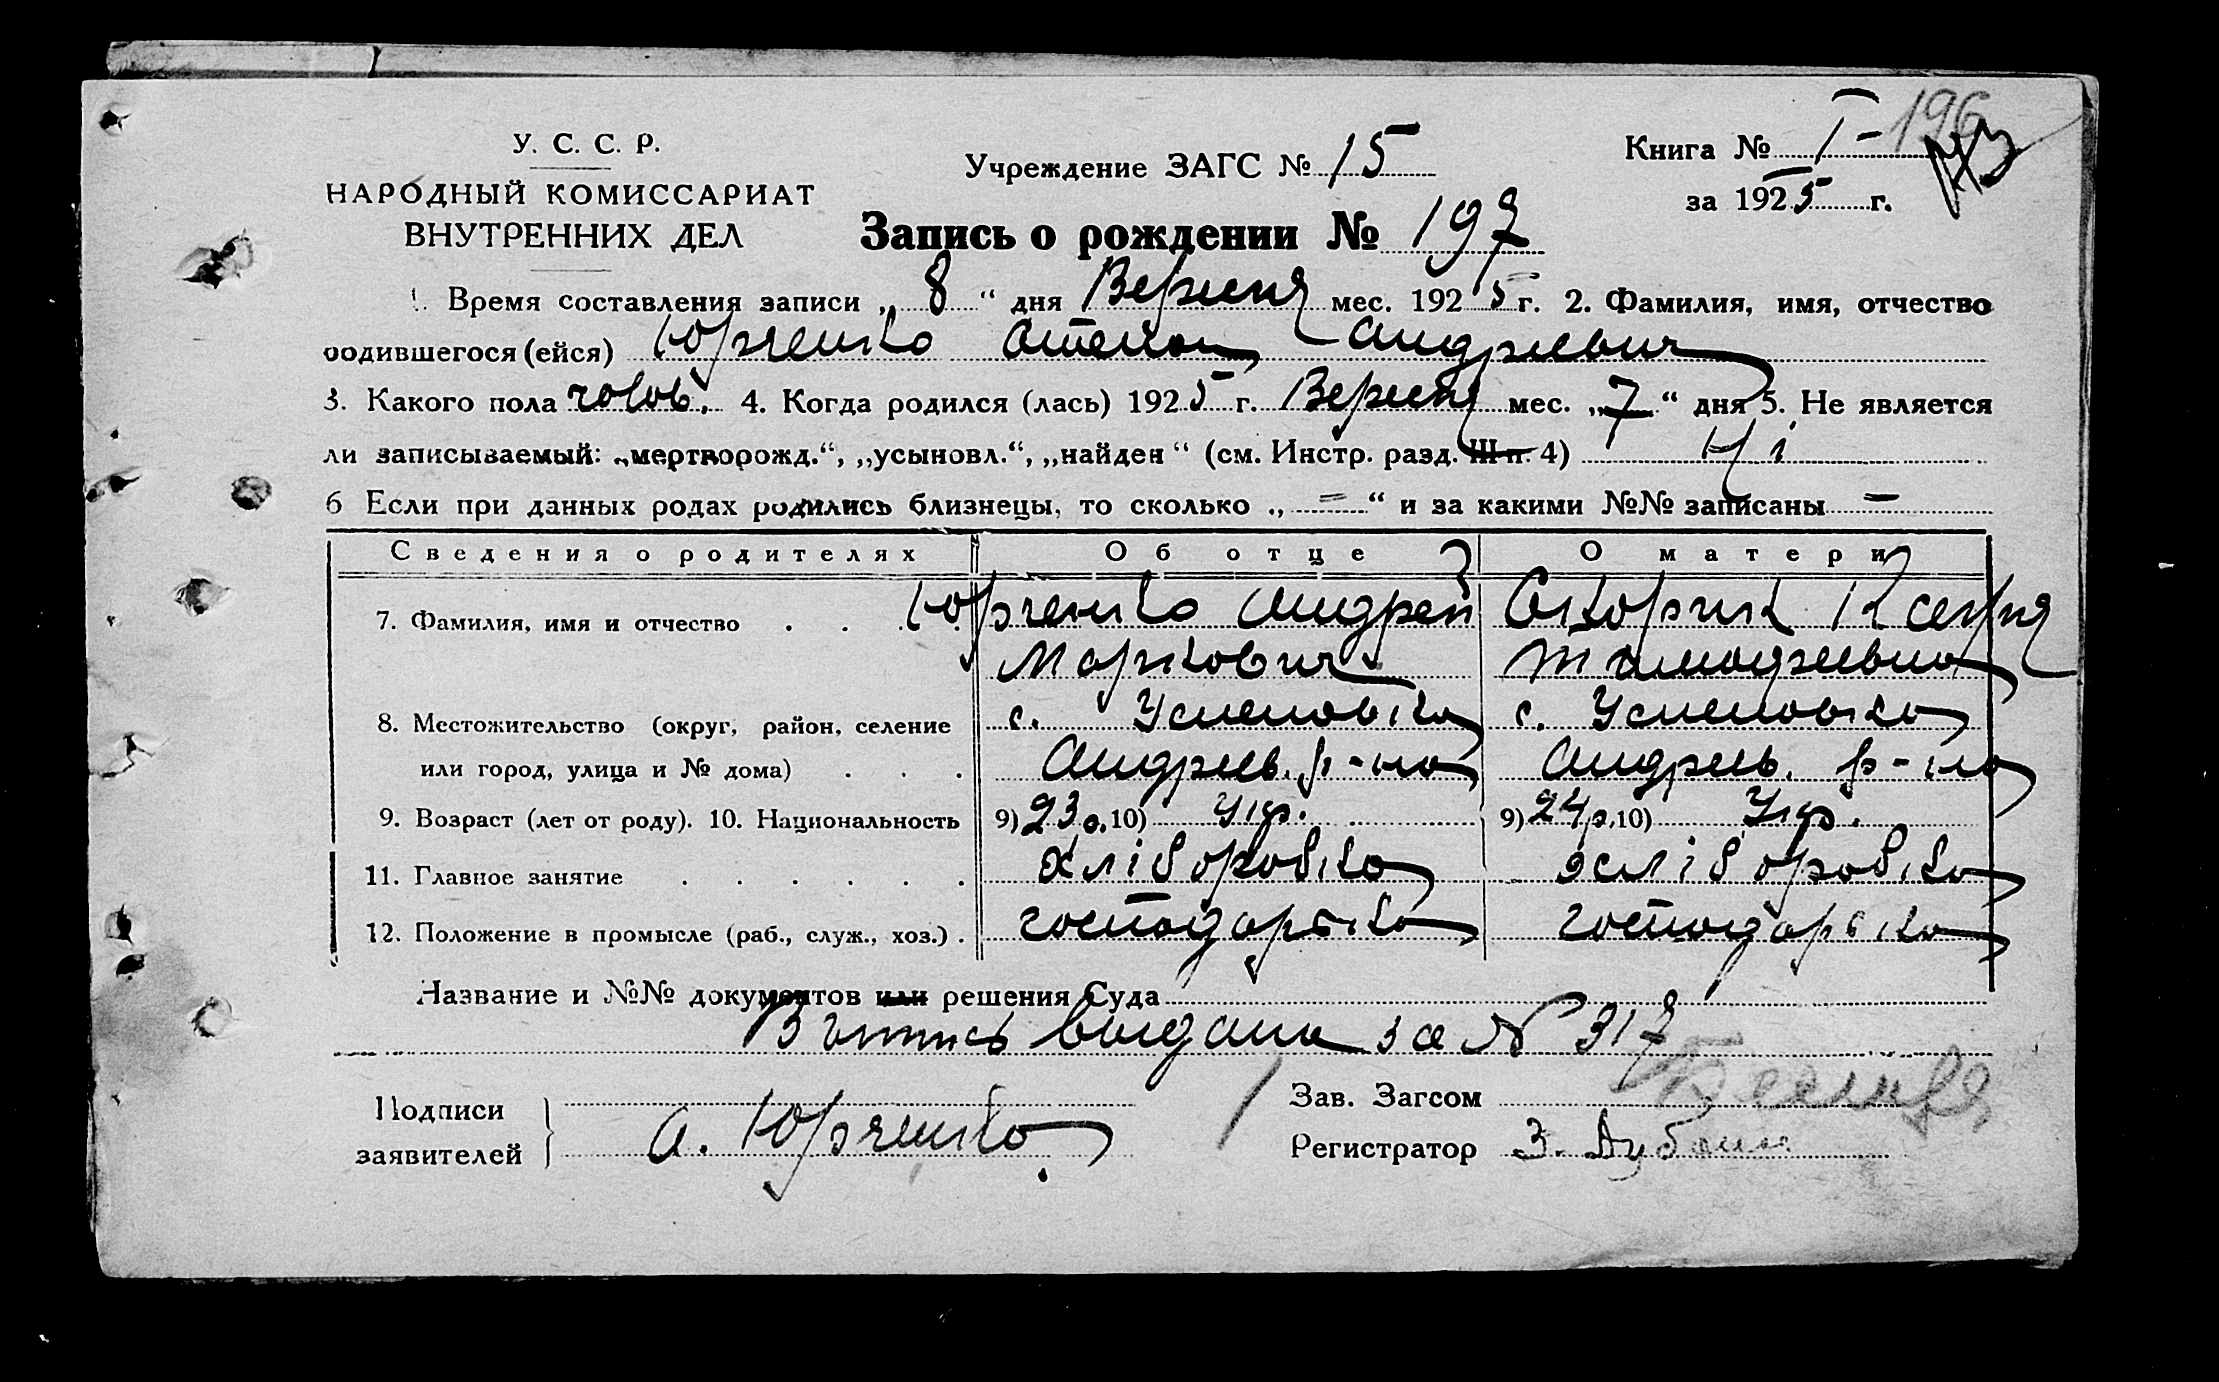 У. С. С. Р.
НАРОДНЫЙ КОМИССАРИАТ
ВНУТРЕННИХ ДЕЛ
Учреждение ЗАГС № 15
Книга № I - 196
за 1925 г.
Запись о рождении № 197
1. Время составления записи „ 8 “ дня Вересня мес. 1925 г. 2. Фамилия, имя, отчество
родившегося (ейся) Юрченко Степан Андреевич
3. Какого пола чолов. 4. Когда родился (лась) 1925 г. Вересня мес. „ 7 “ дня 5. Не является
ли записываемый: „мертворожд.“, „усыновл.“, „найден“ (см. Инстр. разд. III п. 4) Ні
6 Если при данных родах родились близнецы, то сколько „ = “ и за какими №№ записаны –
Сведения о родителях Об отце О матери
7. Фамилия, имя и отчество . . . . Юрченко Андрей Скорик Ксения
Маркович Тимофеевна
8. Местожительство (округ, район, селение с. Успеновка с. Успеновка
или город, улица и № дома) . . . Андреев. р-на Андреев. р-на
9. Возраст (лет от роду). 10. Национальность 9) 23 р. 10) Укр. 9) 24 р. 10) Укр.
11. Главное занятие . . . . . . хліборобска хліборобска
12. Положение в промысле (раб., служ., хоз.) . господарська господарська
Название и №№ документов или решения Суда
Витпись выдана за № 317
Подписи
заявителей
А. Юрченко
Зав. Загсом
Регистратор З.